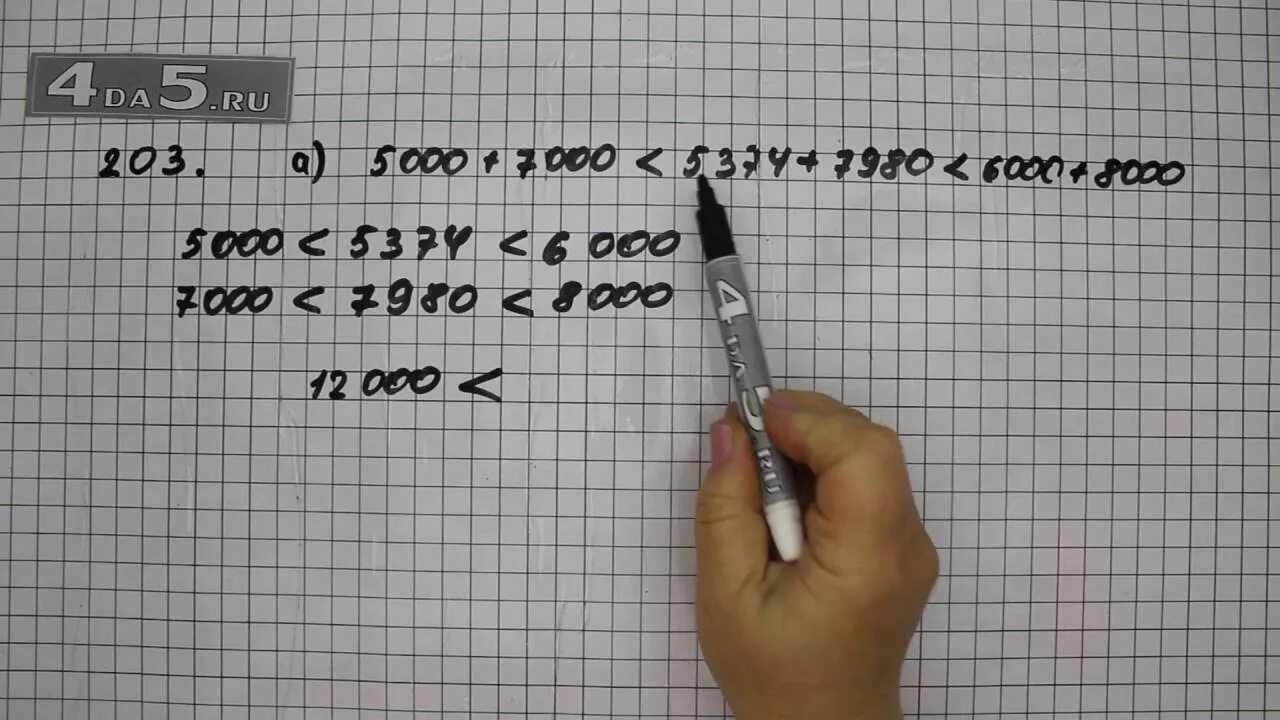 4DA5.RU
203. а) 5000 + 7000 < 5374 + 7980 < 6000 + 8000
5000 < 5374 < 6 000
7000 < 7980 < 8000
12 000 <
4DA5.RU